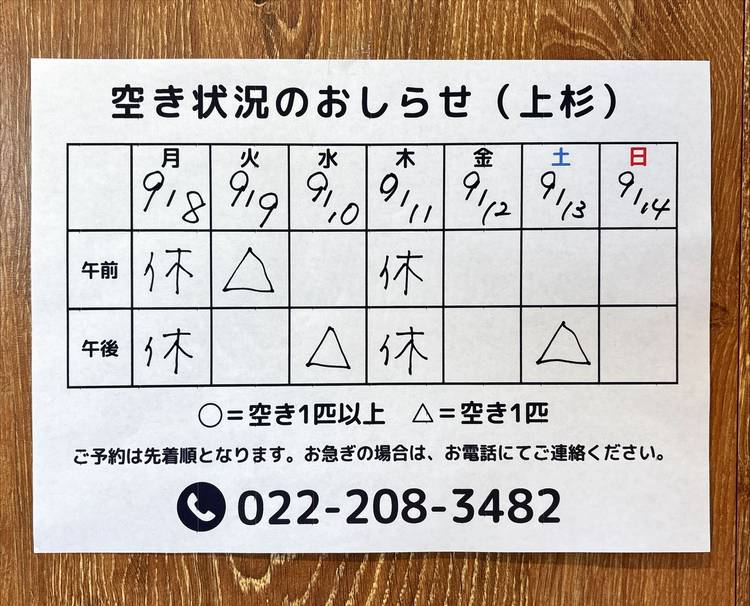 空き状況のおしらせ（上杉）
月 火 水 木 金 土 日
9/8 9/9 9/10 9/11 9/12 9/13 9/14
午前 休 △ 休
午後 休 △ 休 △
○＝空き1匹以上 △＝空き1匹
ご予約は先着順となります。お急ぎの場合は、お電話にてご連絡ください。
022-208-3482